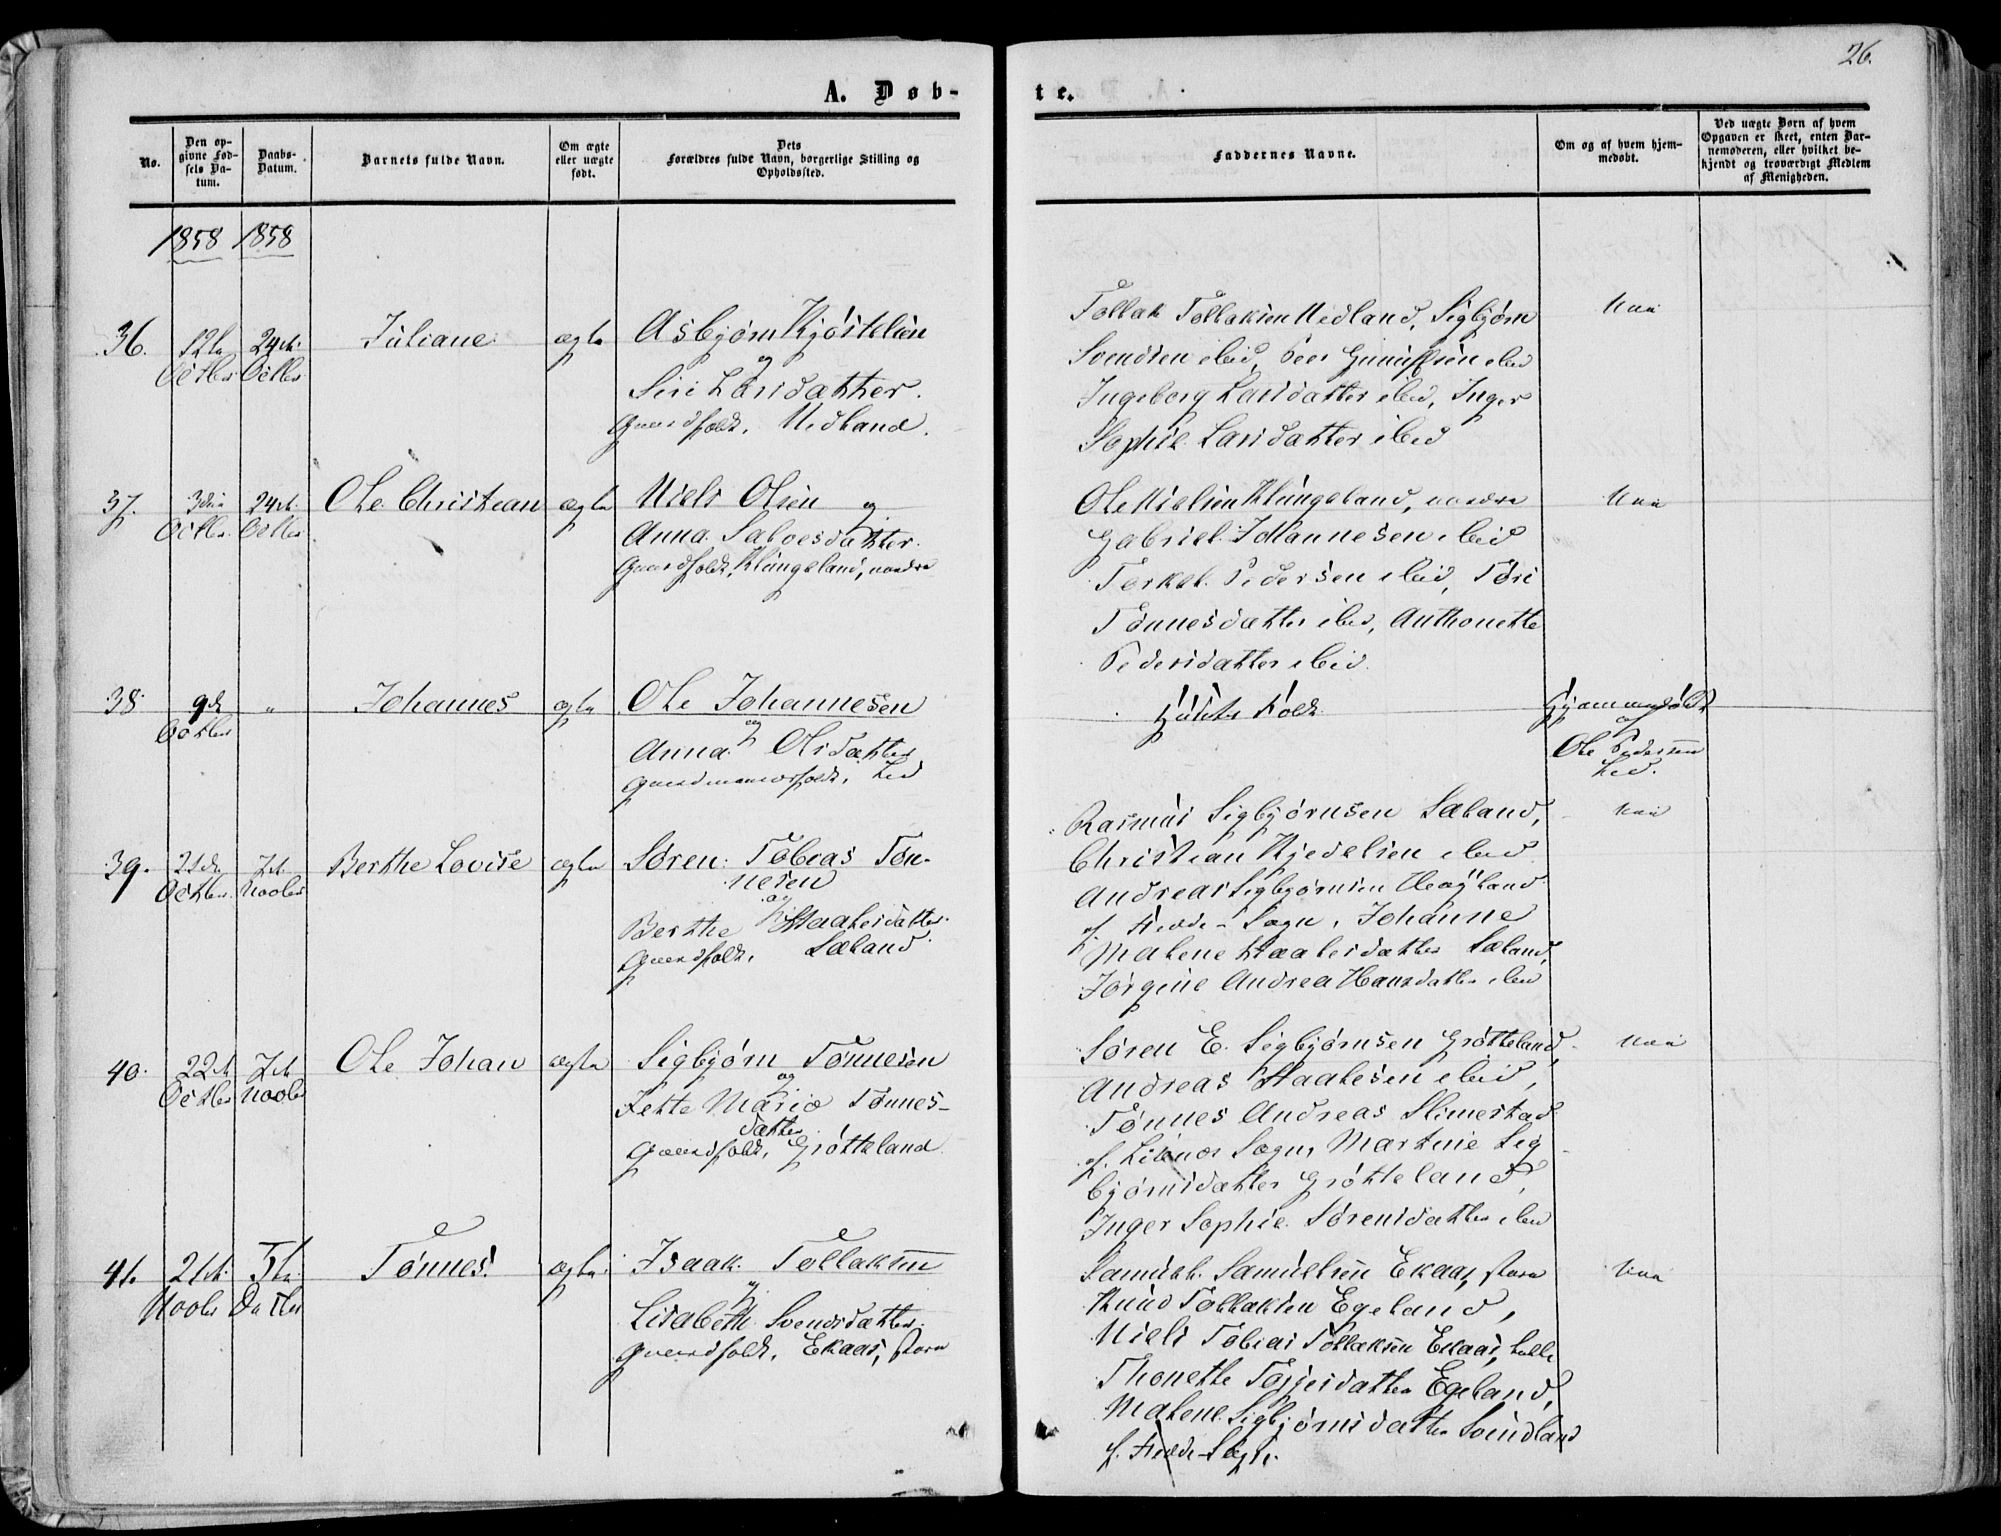 26.
A. Døb-
te.
No.
Den op-
givne Fød-
sels Da-
tum.
Daabs-
Datum.
Barnets fulde Navn.
Om ægte
eller uægte
født.
Dets
Forældres fulde Navn, borgerlige Stilling og
Opholdssted.
Faddernes Navne.
Om og af hvem hjem-
medøbt.
Ved uægte Børn af hvem
Opgaven er skeet, enten Bar-
nemoderen, eller hvilket be-
kjendt og troværdigt Medlem
af Menigheden.
1858 1858
36.
12te
Octbr
24de
Octbr
Juliane
ægte
Asbjørn Kjøstelsen
og
Siri Larsdatter.
Gaardfolk, Nedland.
Tollak Tollaksen Nedland, Sigbjørn
Svendsen ibid, Peer ibid
Ingeborg Larsdatter ibid, Inger
Sophie Larsdatter ibid
Nei
37.
3die
Octbr.
24de
Octbr
Ole Christian
ægte
Niels Olsen og
Anna Salvesdatter.
Gaardfolk, Klungeland, nordre
Ole Nielsen Klungeland, nordre
Gabriel Johannesen ibid
Terkel Pedersen ibid, Tøri
Tønnesdatter ibid, Anthonette
Pedersdatter ibid.
Nei
38.
9de
Octbr
"
Johannes
ægte
Ole Johannesen
og
Anna Olsdatter
Gaardmandsfolk, Led
Huusets Folk
Hjemmedøbt
af
Ole Pedersen
Led.
39.
21de
Octbr.
7de
Novbr
Berthe Lovise
ægte
Søren Tobias Tøn-
nesen
og
Berthe Haakesdatter.
Gaardfolk, Sæland.
Rasmus Sigbjørnsen Sæland,
Christian Kjedelsen ibid
Andreas Sigbjørnsen Houghland
af Fede-Sogn, Johanne
Malene Haakesdatter Sæland,
Jørgine Andrea Hansdatter ibid
Nei
40.
22de
Octbr
7de
Novbr
Ole Johan
ægte
Sigbjørn Tønnesen
og
Jette Maria Tønnes-
datter
Gaardfolk, Grøtteland.
Søren E. Sigbjørnsen Grøtteland,
Andreas Haakesen ibid,
Tønnes Andreas Slimestad
af Liknes Sogn, Martine Sig
bjørnsdatter Grøtteland,
Inger Sophie Sørensdatter ibid
Nei
41.
21de
Novbr
5te
Decbr
Tønnes.
ægte.
Isaak Tollaksen
og
Lisabeth Svendsdatter.
Gaardfolk, Ekaas, store
Samuel Samuelsen Ekaas, store
Knud Tollaksen Egeland,
Niels Tobias Tollaksen Ekaas, lille
Thonette Torjesdatter Egeland,
Malene Sigbjørnsdatter Svindland
af Fede-Sogn.
Nei